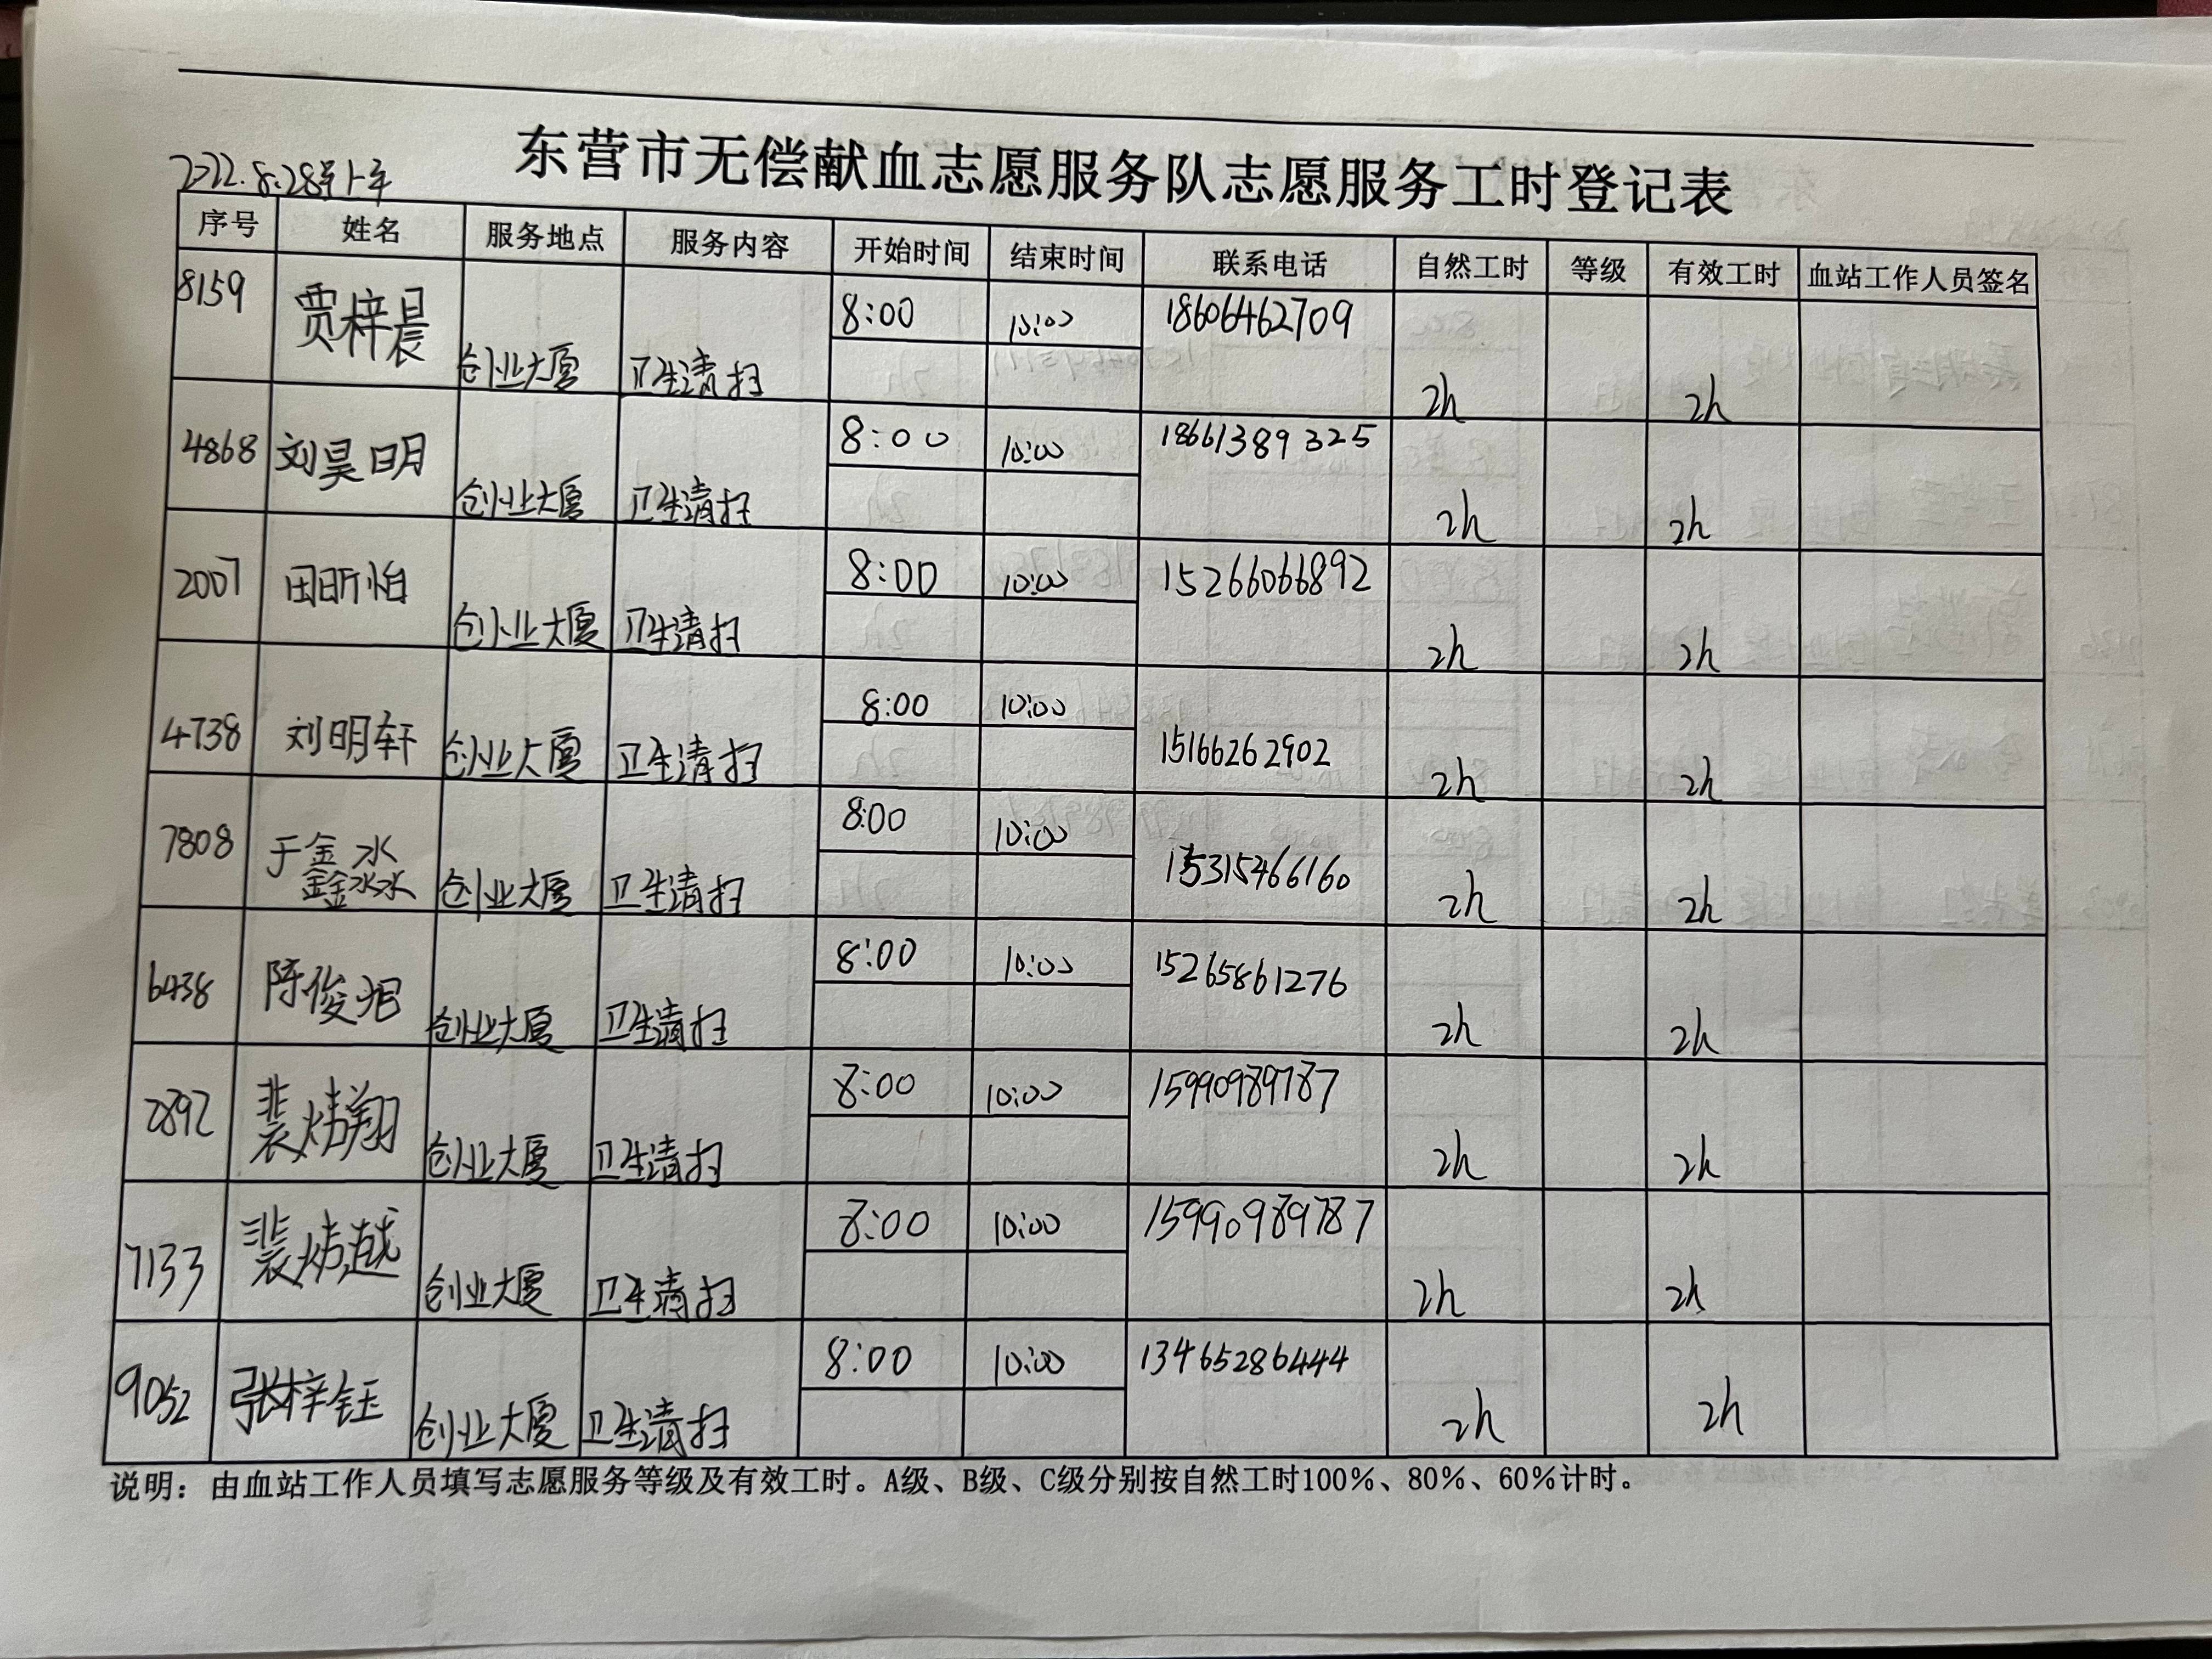 东营市无偿献血志愿服务队志愿服务工时登记表
2022.8.28号上午
序号 姓名 服务地点 服务内容 开始时间 结束时间 联系电话 自然工时 等级 有效工时 血站工作人员签名
8159 贾梓晨 创业大厦 卫生清扫 8:00 10:00 18606462709 2h 2h
4868 刘昊明 创业大厦 卫生清扫 8:00 10:00 18661389325 2h 2h
2007 田昕怡 创业大厦 卫生清扫 8:00 10:00 15266066892 2h 2h
4738 刘明轩 创业大厦 卫生清扫 8:00 10:00 15166262902 2h 2h
7808 于鑫淼 创业大厦 卫生清扫 8:00 10:00 15315466160 2h 2h
6438 陈俊 创业大厦 卫生清扫 8:00 10:00 15265861276 2h 2h
2892 裴炜翔 创业大厦 卫生清扫 8:00 10:00 15990989787 2h 2h
7133 裴炜越 创业大厦 卫生清扫 8:00 10:00 15990989787 2h 2h
9052 张梓钰 创业大厦 卫生清扫 8:00 10:00 13465286444 2h 2h
说明：由血站工作人员填写志愿服务等级及有效工时。A级、B级、C级分别按自然工时100%、80%、60%计时。